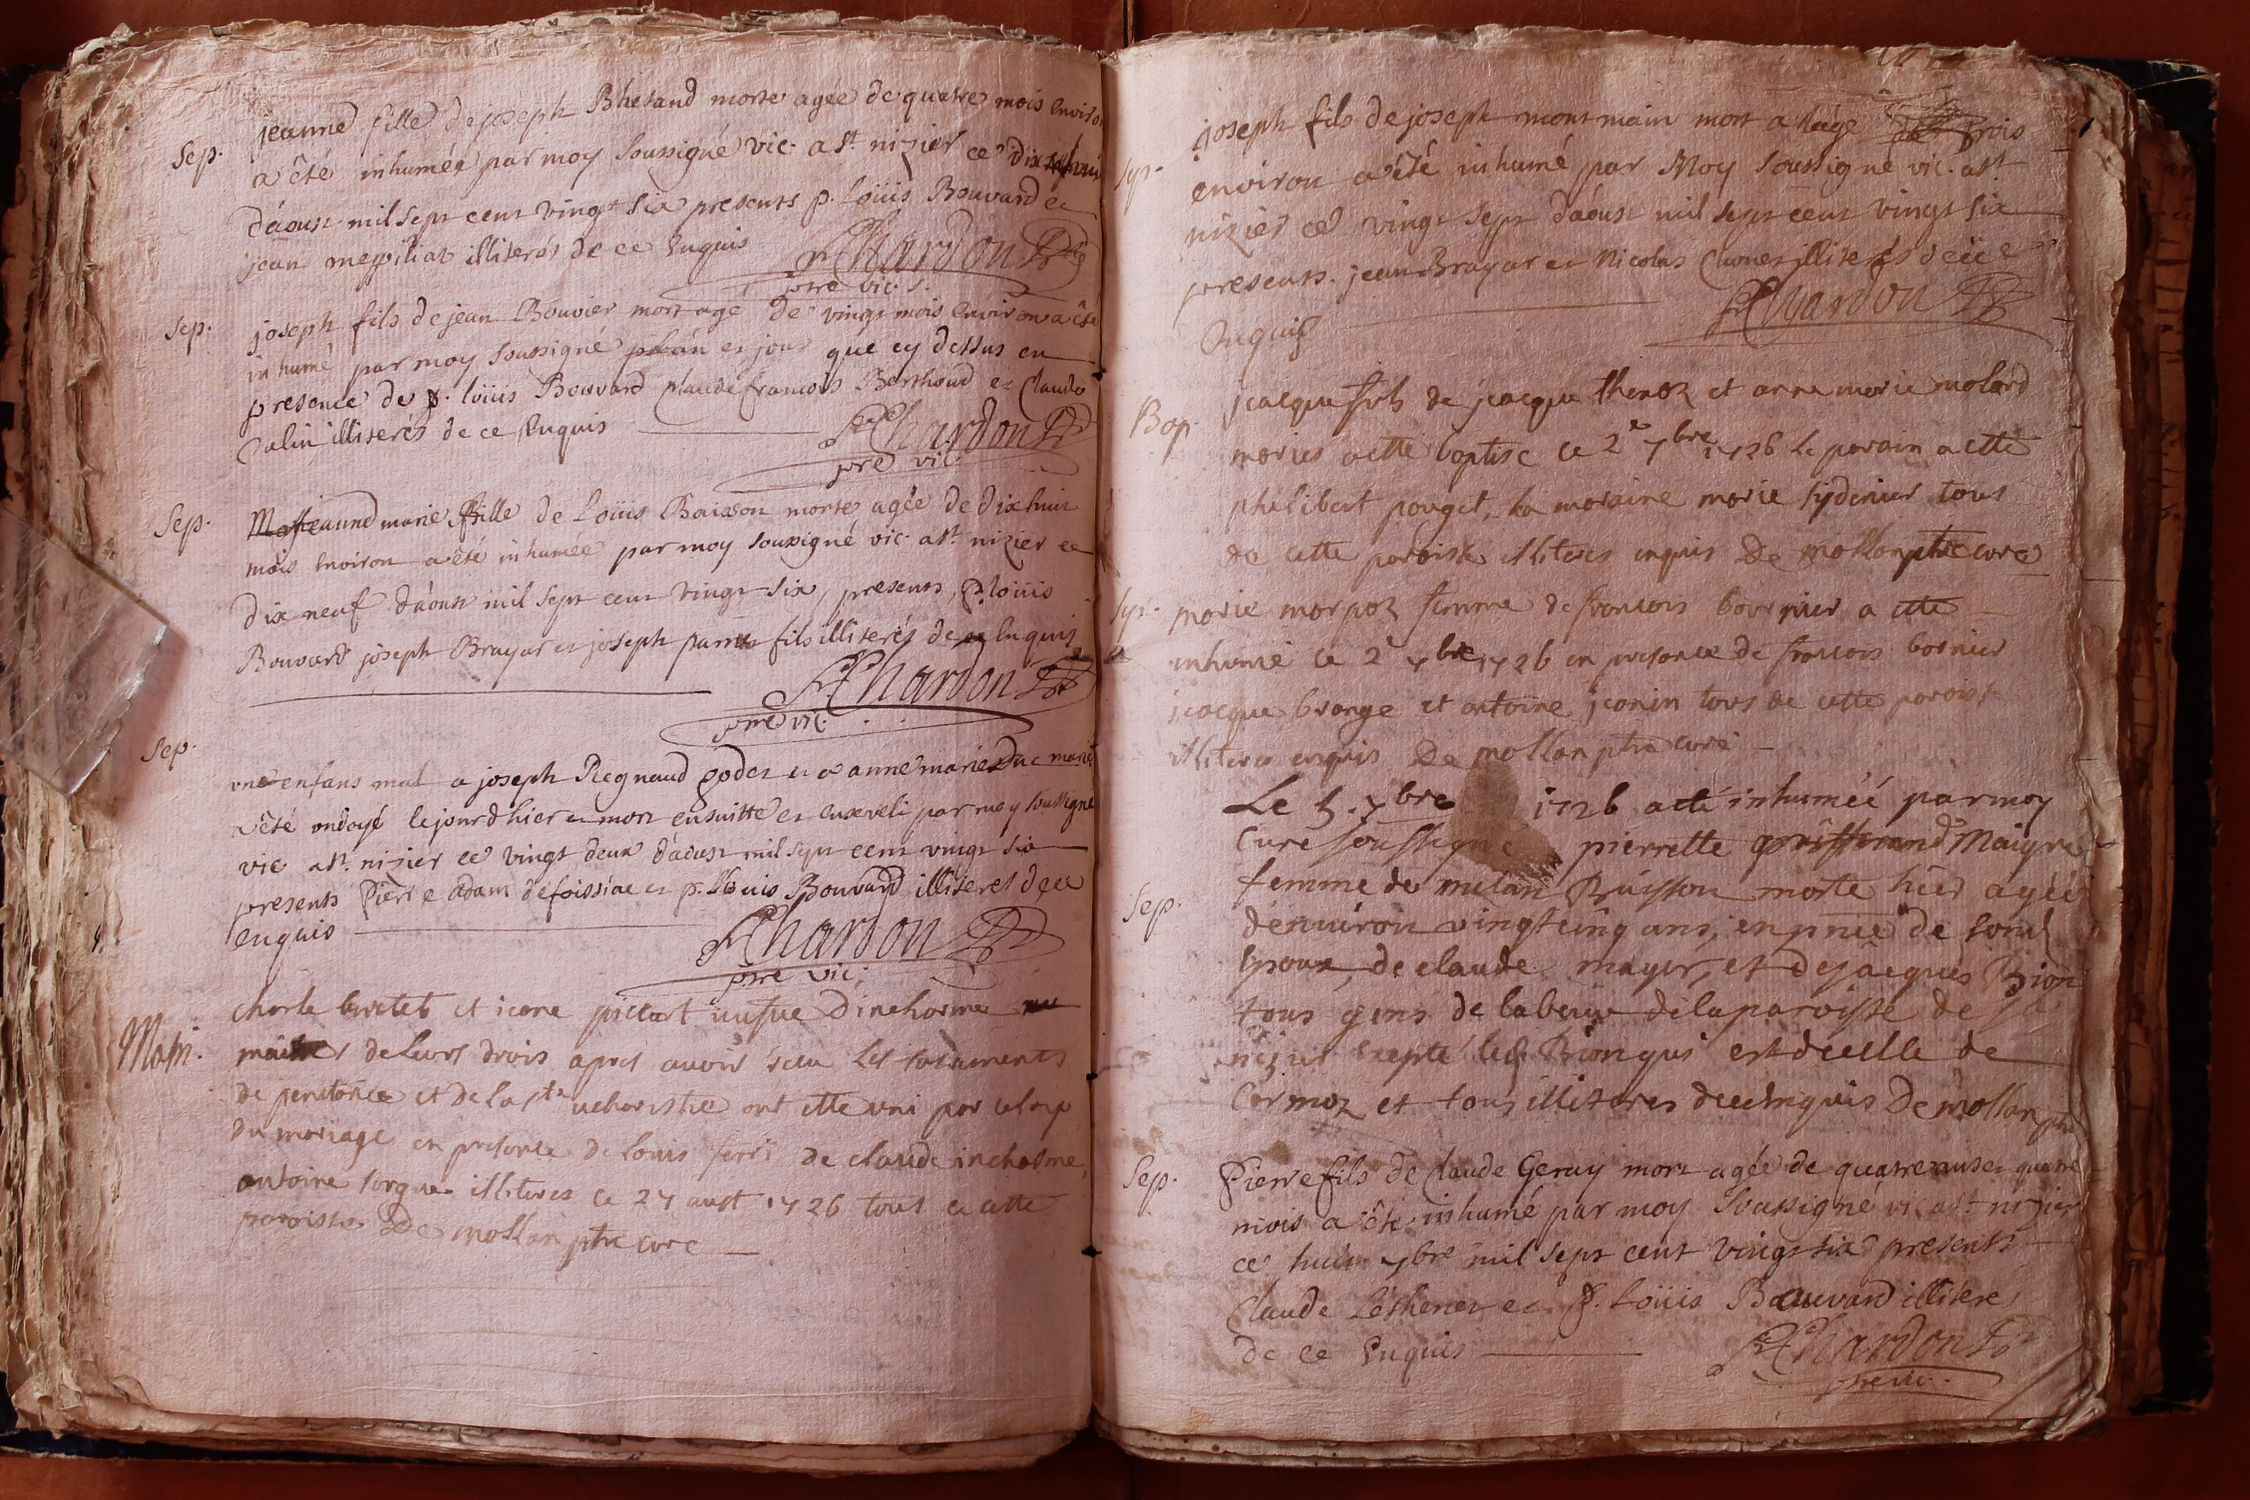 Sep.
jeanne fille de joseph Bherand morte agée de quatre mois environ
a été inhumée par moy soussigné vic. a st. nizier ce dix
d'aoust mil sept cent vingt six presents p. Loüis Bouvard et
jean mepiliat illiterés de ce Enquis
Chardon
ptre vic.
Sep.
joseph fils de jean Bouvier mort agé de vingt mois environ a été
inhumé par moy soussigné an et jour que cy dessus en
presence de p. loüis Bouvard Claude francois Berthoud et Claude
illiterés de ce Enquis
Chardon
ptre vic.
Sep.
jeanne marie fille de Loüis Baisson morte agée de dix huit
mois environ a été inhumée par moy soussigné vic. a st. nizier ce
dix neuf d'aoust mil sept cent vingt six, presents, p. loüis
Bouvard joseph Brayar et joseph fils illiterés de ce Enquis
Chardon
ptre vic.
Sep.
une enfans mal a joseph Regnaud godet et a anne marie Duc mariés
a été ondoyé le jourd'hier et mort ensuitte et enseveli par moy soussigné
vic a st. nizier ce vingt deux d'aoust mil sept cent vingt six
presents Pierre adam defoissiat et p. Louis Bouvard illiteres de ce
enquis
Chardon
ptre vic.
Mari.
charle et picart veusue d inchosme
maitres de leurs drois apres avoir receu les sacraments
de penitance et de la ste ucharistie ont ette uni par
du mariage en presance de louis de claude inchosme,
antoine illiteres ce 27 aust 1726 tout de cette
paroisse De mollan ptre curé
Sep.
joseph fils de joseph montmain mort a l'age de trois
environ a été inhumé par Moy soussigné vic. a st.
nizier ce vingt sept d'aoust mil sept cent vingt six
presents. jean Brayar et Nicolas illiterés de ce
Enquis
Chardon
Bap.
jcacque fils de jcacque thenoz et anne marie molard
maries a ette baptise ce 2e 7bre 1726 le parain a ette
philibert pouget, la maraine marie tous
de cette paroisse illiteres enquis De mollan ptre curé
Sep.
marie morpoz femme de francois bournier a ette
inhumé ce 2 7bre 1726 en presance de francois bornier
jcacque brange et antoine jcanin tous de cette paroisse
illiteres enquis De mollan ptre curé
Le 5. 7bre 1726 a eté inhumée par moy
Curé soussigné pierrette Maigre
Sep.
femme de milan Buisson morte hier agée
d'environ vingt cinq ans, en pnce de sond
Epoux, de claude mayer, et de jacques Bion
tous gens de labeur de la paroisse de st
nizier Excepté led. Bion qui est de celle de
Cormoz et tous illiteres de ce enquis De mollan ptre
Sep.
Pierre fils de Claude Geray mort agée de quatre ans et quatre
mois a été inhumé par moy soussigné vic a st nizier
ce huit 7bre mil sept cent vingt six presents
Claude Léthenet et p. Loüis Bouvard illiteres
de ce Enquis
Chardon
ptre vic.